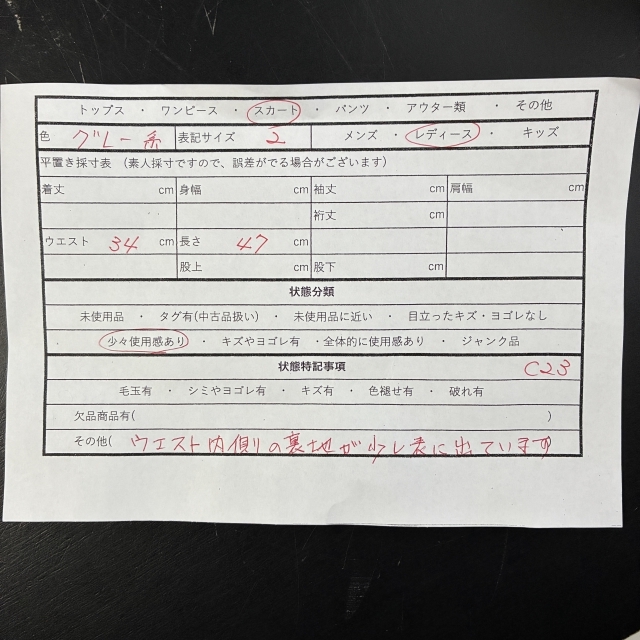 トップス ・ ワンピース ・ スカート ・ パンツ ・ アウター類 ・ その他
色 グレー系 表記サイズ 2 メンズ ・ レディース ・ キッズ
平置き採寸表 （素人採寸ですので、誤差がでる場合がございます）
着丈 cm 身幅 cm 袖丈 cm 肩幅 cm
裄丈 cm
ウエスト 34 cm 長さ 47 cm
股上 cm 股下 cm
状態分類
未使用品 ・ タグ有(中古品扱い) ・ 未使用品に近い ・ 目立ったキズ・ヨゴレなし
少々使用感あり ・ キズやヨゴレ有 ・全体的に使用感あり ・ ジャンク品
状態特記事項 C23
毛玉有 ・ シミやヨゴレ有 ・ キズ有 ・ 色褪せ有 ・ 破れ有
欠品商品有( )
その他( ウエスト内側の裏地が少し表に出ています